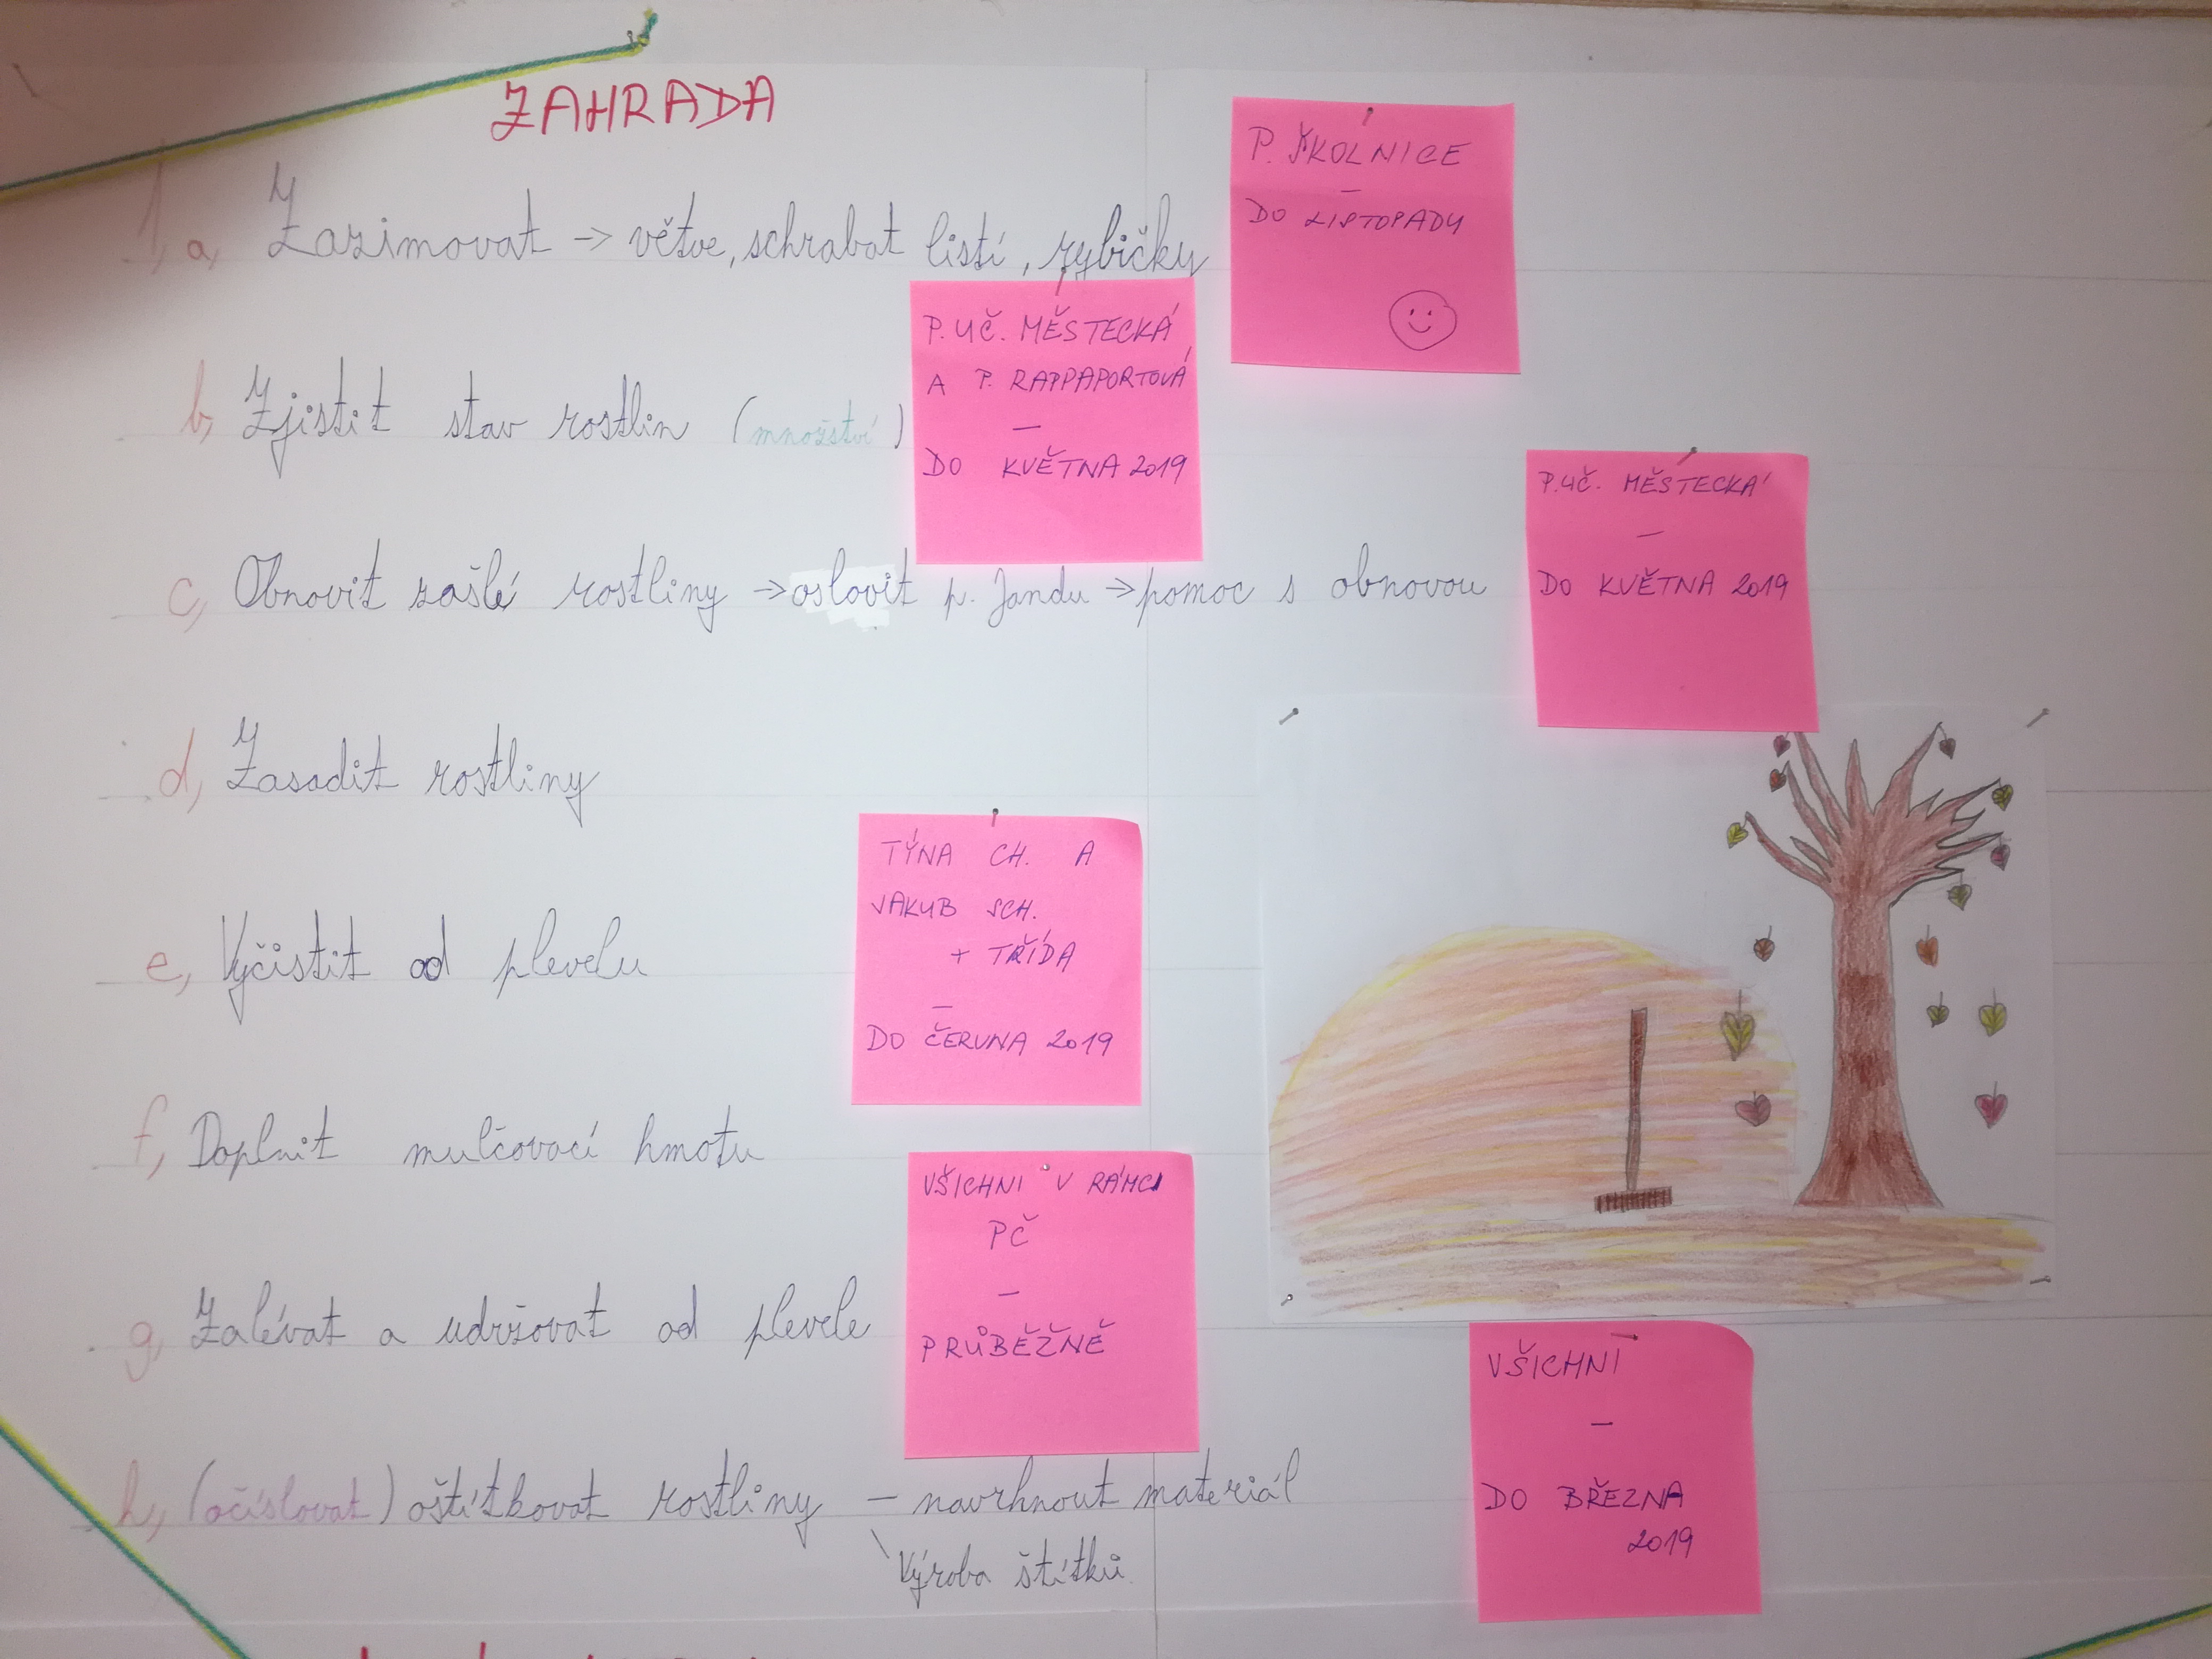 ZAHRADA
1, a, Zazimovat → větve, schrabat listí, rybičky
P. ŠKOLNICE
–
DO LISTOPADU
b, Zjistit stav rostlin (množství)
P. UČ. MĚSTECKÁ
A P. RAPPAPORTOVÁ
–
DO KVĚTNA 2019
c, Obnovit zašlé rostliny → oslovit p. Jandu → pomoc s obnovou
P. UČ. MĚSTECKÁ
–
DO KVĚTNA 2019
d, Zasadit rostliny
e, Vyčistit od plevelu
TÝNA CH. A
JAKUB SCH.
+ TŘÍDA
–
DO ČERVNA 2019
f, Doplnit mulčovací hmotu
g, Zalévat a udržovat od plevele
VŠICHNI V RÁMCI
PČ
–
PRŮBĚŽNĚ
h, (očíslovat) oštítkovat rostliny – navrhnout materiál
\ Výroba štítků
VŠICHNI
–
DO BŘEZNA
2019